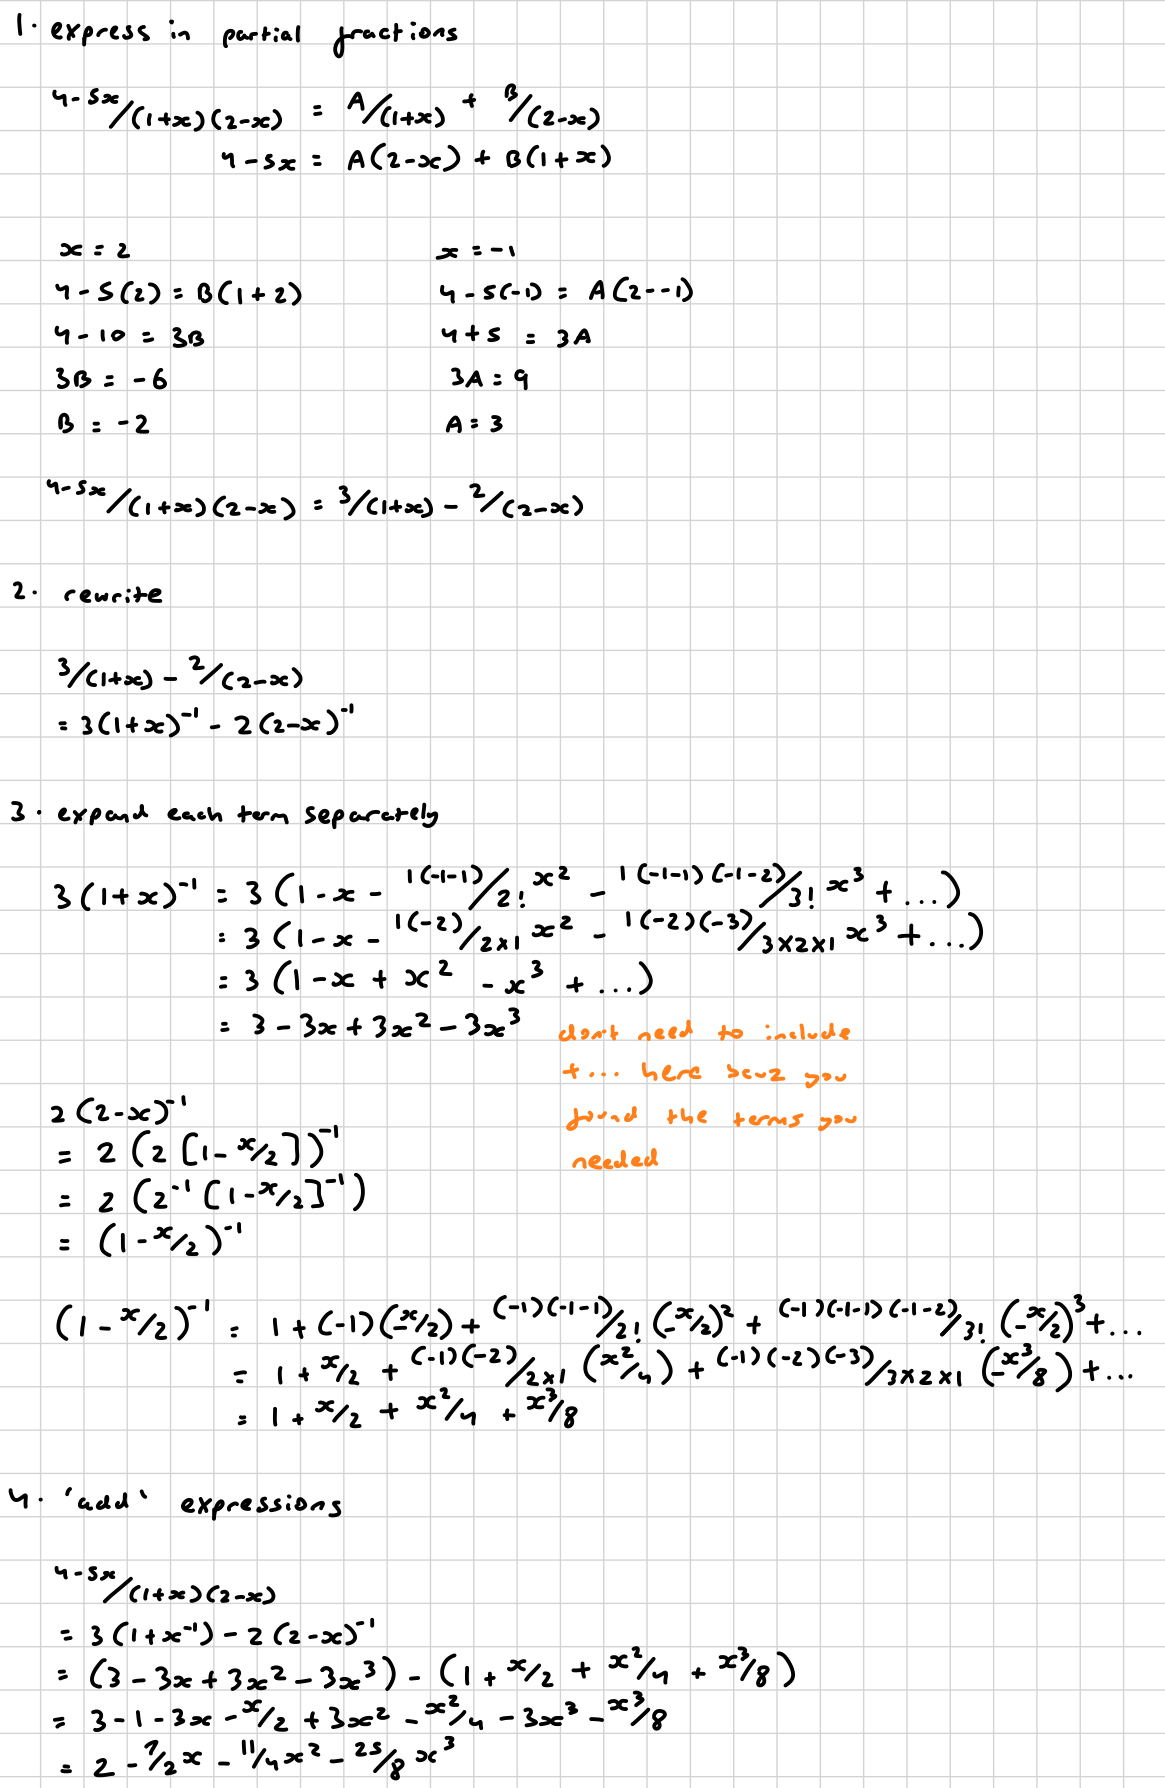 1. express in partial fractions
4-5x/(1+x)(2-x) = A/(1+x) + B/(2-x)
4-5x = A(2-x) + B(1+x)
x = 2
x = -1
4-5(2) = B(1+2)
4-5(-1) = A(2--1)
4-10 = 3B
4+5 = 3A
3B = -6
3A = 9
B = -2
A = 3
4-5x/(1+x)(2-x) = 3/(1+x) - 2/(2-x)
2. rewrite
3/(1+x) - 2/(2-x)
= 3(1+x)⁻¹ - 2(2-x)⁻¹
3. expand each term separately
3(1+x)⁻¹ = 3(1-x- 1(-1-1)/2! x² - 1(-1-1)(-1-2)/3! x³ + ...)
= 3(1-x- 1(-2)/2×1 x² - 1(-2)(-3)/3×2×1 x³ + ...)
= 3(1-x + x² - x³ + ...)
= 3 - 3x + 3x² - 3x³
don't need to include
+... here bcuz you
found the terms you
needed
2(2-x)⁻¹
= 2(2[1-x/2])⁻¹
= 2(2⁻¹[1-x/2]⁻¹)
= (1-x/2)⁻¹
(1-x/2)⁻¹ = 1+(-1)(-x/2) + (-1)(-1-1)/2! (-x/2)² + (-1)(-1-1)(-1-2)/3! (-x/2)³ + ...
= 1 + x/2 + (-1)(-2)/2×1 (x²/4) + (-1)(-2)(-3)/3×2×1 (-x³/8) + ...
= 1 + x/2 + x²/4 + x³/8
4. 'add' expressions
4-5x/(1+x)(2-x)
= 3(1+x⁻¹) - 2(2-x)⁻¹
= (3 - 3x + 3x² - 3x³) - (1 + x/2 + x²/4 + x³/8)
= 3-1-3x-x/2 + 3x² - x²/4 - 3x³ - x³/8
= 2 - 7/2x - 11/4x² - 25/8x³